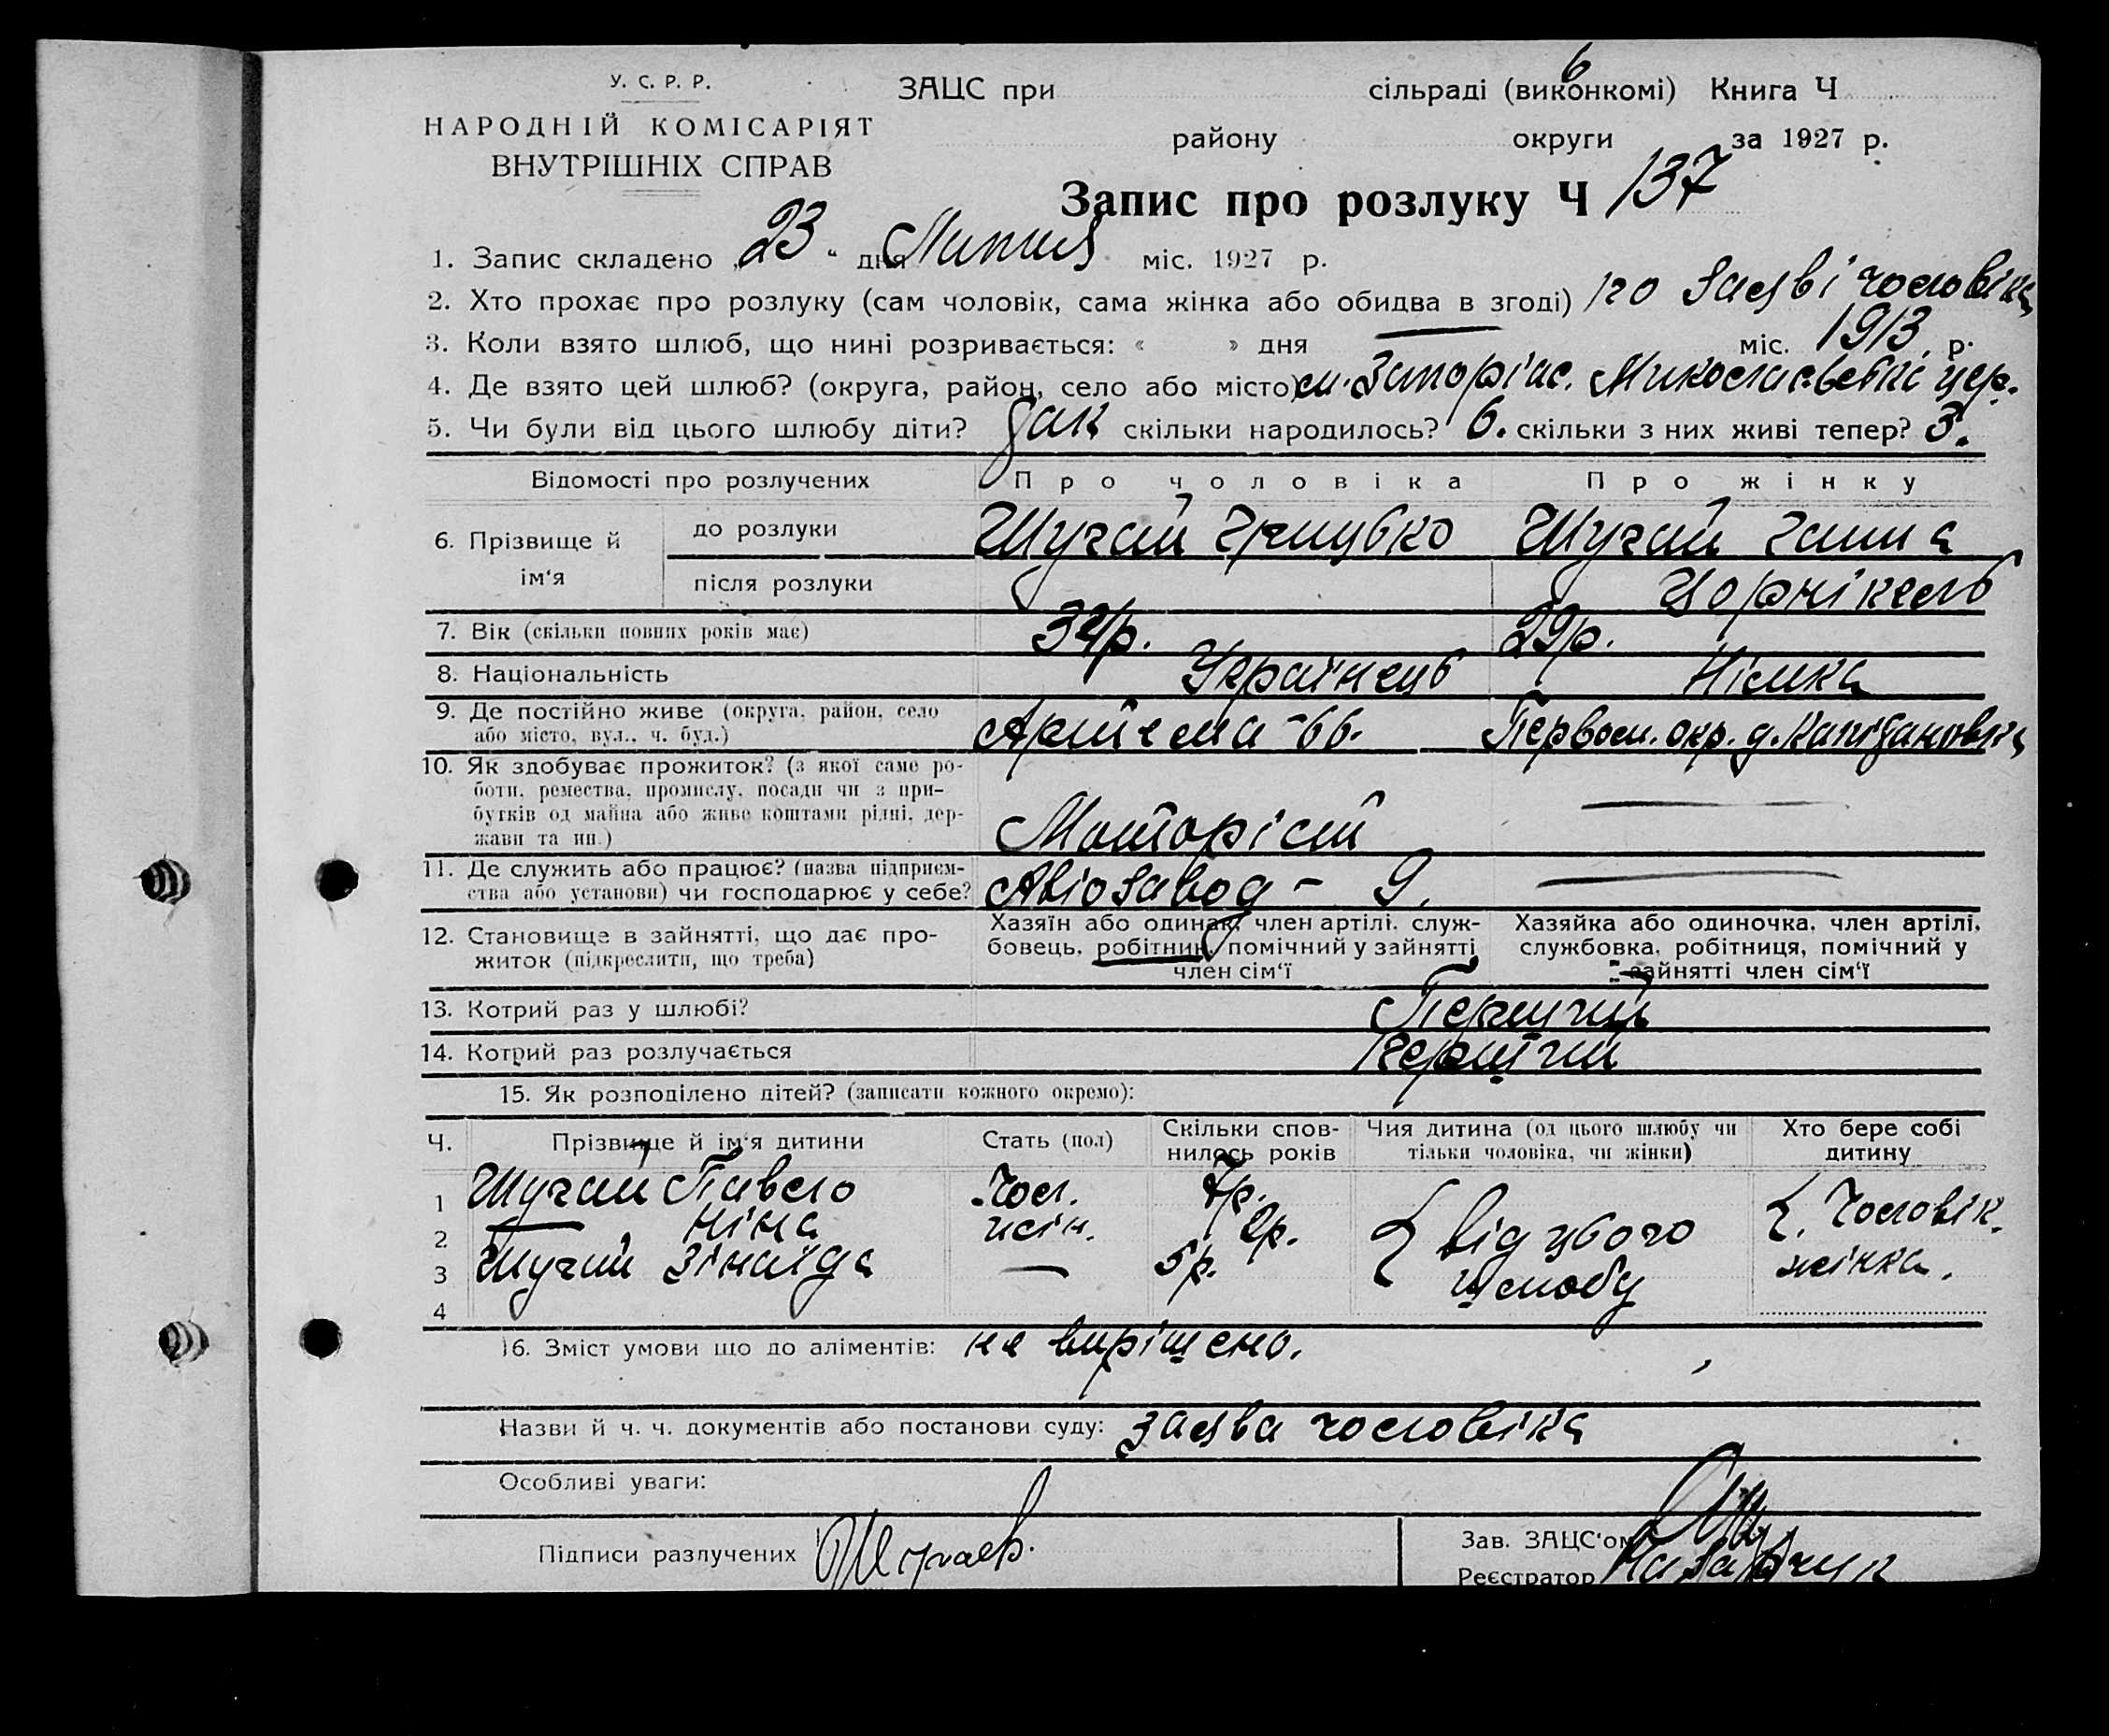 У. С. Р. Р.
НАРОДНІЙ КОМІСАРІЯТ
ВНУТРІШНІХ СПРАВ
ЗАЦС при сільраді (виконкомі) Книга Ч
6
району округи за 1927 р.
Запис про розлуку Ч 137
1. Запис складено „23“ дня Липня міс. 1927 р.
2. Хто прохає про розлуку (сам чоловік, сама жінка або обидва в згоді) по заяві чоловіка
3. Коли взято шлюб, що нині розривається: « » дня — міс. 1913 р.
4. Де взято цей шлюб? (округа, район, село або місто) м. Запоріж. цер.
5. Чи були від цього шлюбу діти? так скільки народилось? 6. скільки з них живі тепер? 3.
Відомості про розлучених Про чоловіка Про жінку
6. Прізвище й ім'я
до розлуки Шугай Грицько Шугай Ганна
після розлуки Цорнікель
7. Вік (скільки повних років має) 34р. 29р.
8. Національність Українець Німка
9. Де постійно живе (округа, район, село або місто, вул., ч. буд.) Артема - 66. Первом. окр.
10. Як здобуває прожиток? (з якої саме роботи, ремества, промислу, посади чи з прибутків од майна або живе коштами рідні, держави та ин.) Моторіст —
11. Де служить або працює? (назва підприємства або установи) чи господарює у себе? Авіозавод - 9. —
12. Становище в зайнятті, що дає прожиток (підкреслити, що треба)
Хазяїн або одинак, член артілі, службовець, робітник, помічний у зайнятті член сім'ї
Хазяйка або одиночка, член артілі, службовка, робітниця, помічний у зайнятті член сім'ї
13. Котрий раз у шлюбі? Перший
14. Котрий раз розлучається перший
15. Як розподілено дітей? (записати кожного окремо):
Ч. Прізвище й ім'я дитини Стать (пол) Скільки сповнилось років Чия дитина (од цього шлюбу чи тільки чоловіка, чи жінки) Хто бере собі дитину
1 Шугай Павело Чол. 7р. { Від цього шлюбу {. Чоловік.
2 — Ніна жін. 2р.
3 Шугай Зінаїда — 5р. жінка.
4
16. Зміст умови що до аліментів: не вирішено.
Назви й ч. ч. документів або постанови суду: заява чоловіка
Особливі уваги:
Підписи разлучених
Зав. ЗАЦС'ом
Реєстратор